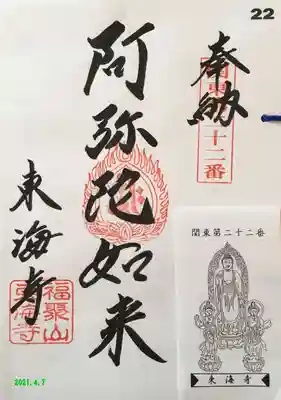 22
奉納
関東
十二番
阿弥陀如来
東海寺
福聚山
東海寺
関東第二十二番
東海寺
2021.4.7